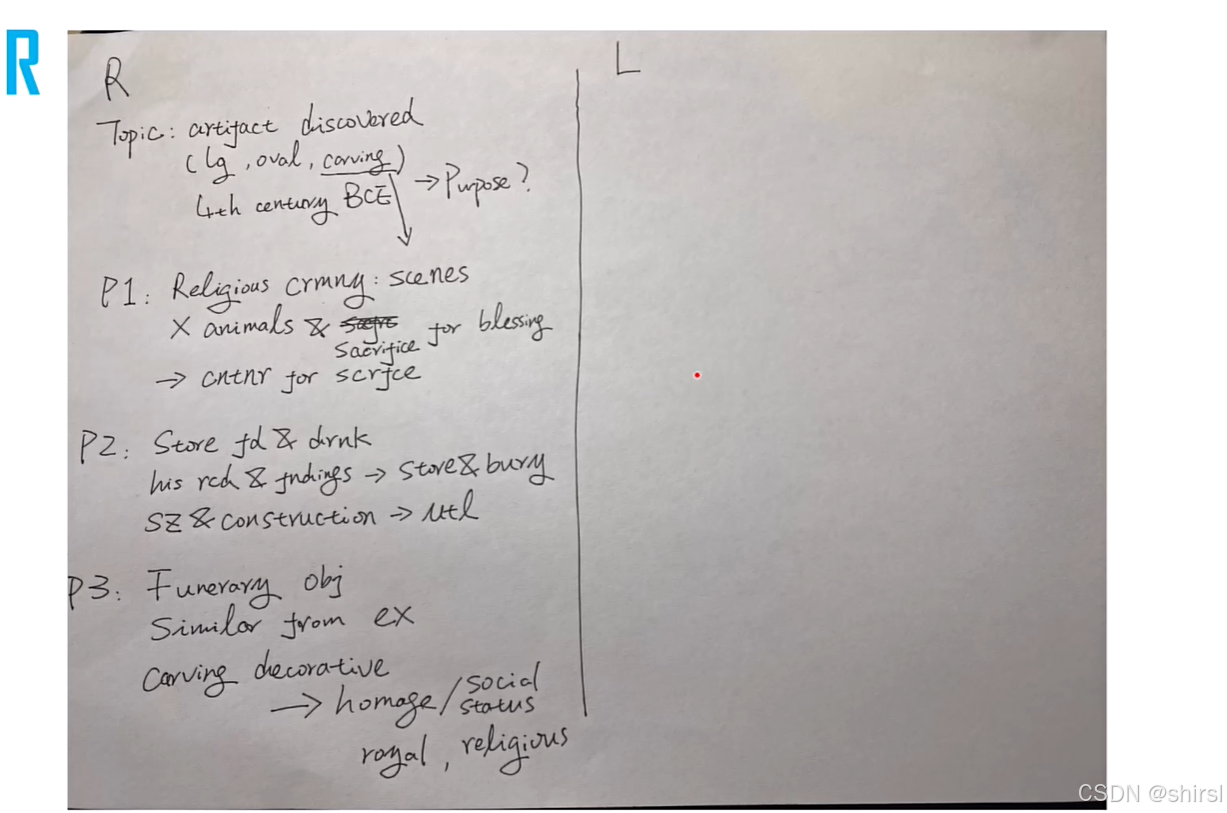 R
R
L
Topic: artifact discovered
(lg, oval, carving)
4th century BCE
→ Purpose?
P1: Religious crmny: scenes
X animals & sacrifice for blessing
→ cntnr for scrfce
P2: Store fd & drnk
his rcd & fndings → store & bury
SZ & construction → utl
P3: Funerary obj
Similar from ex
Carving decorative
→ homage / social status
royal, religious
CSDN @shirsl